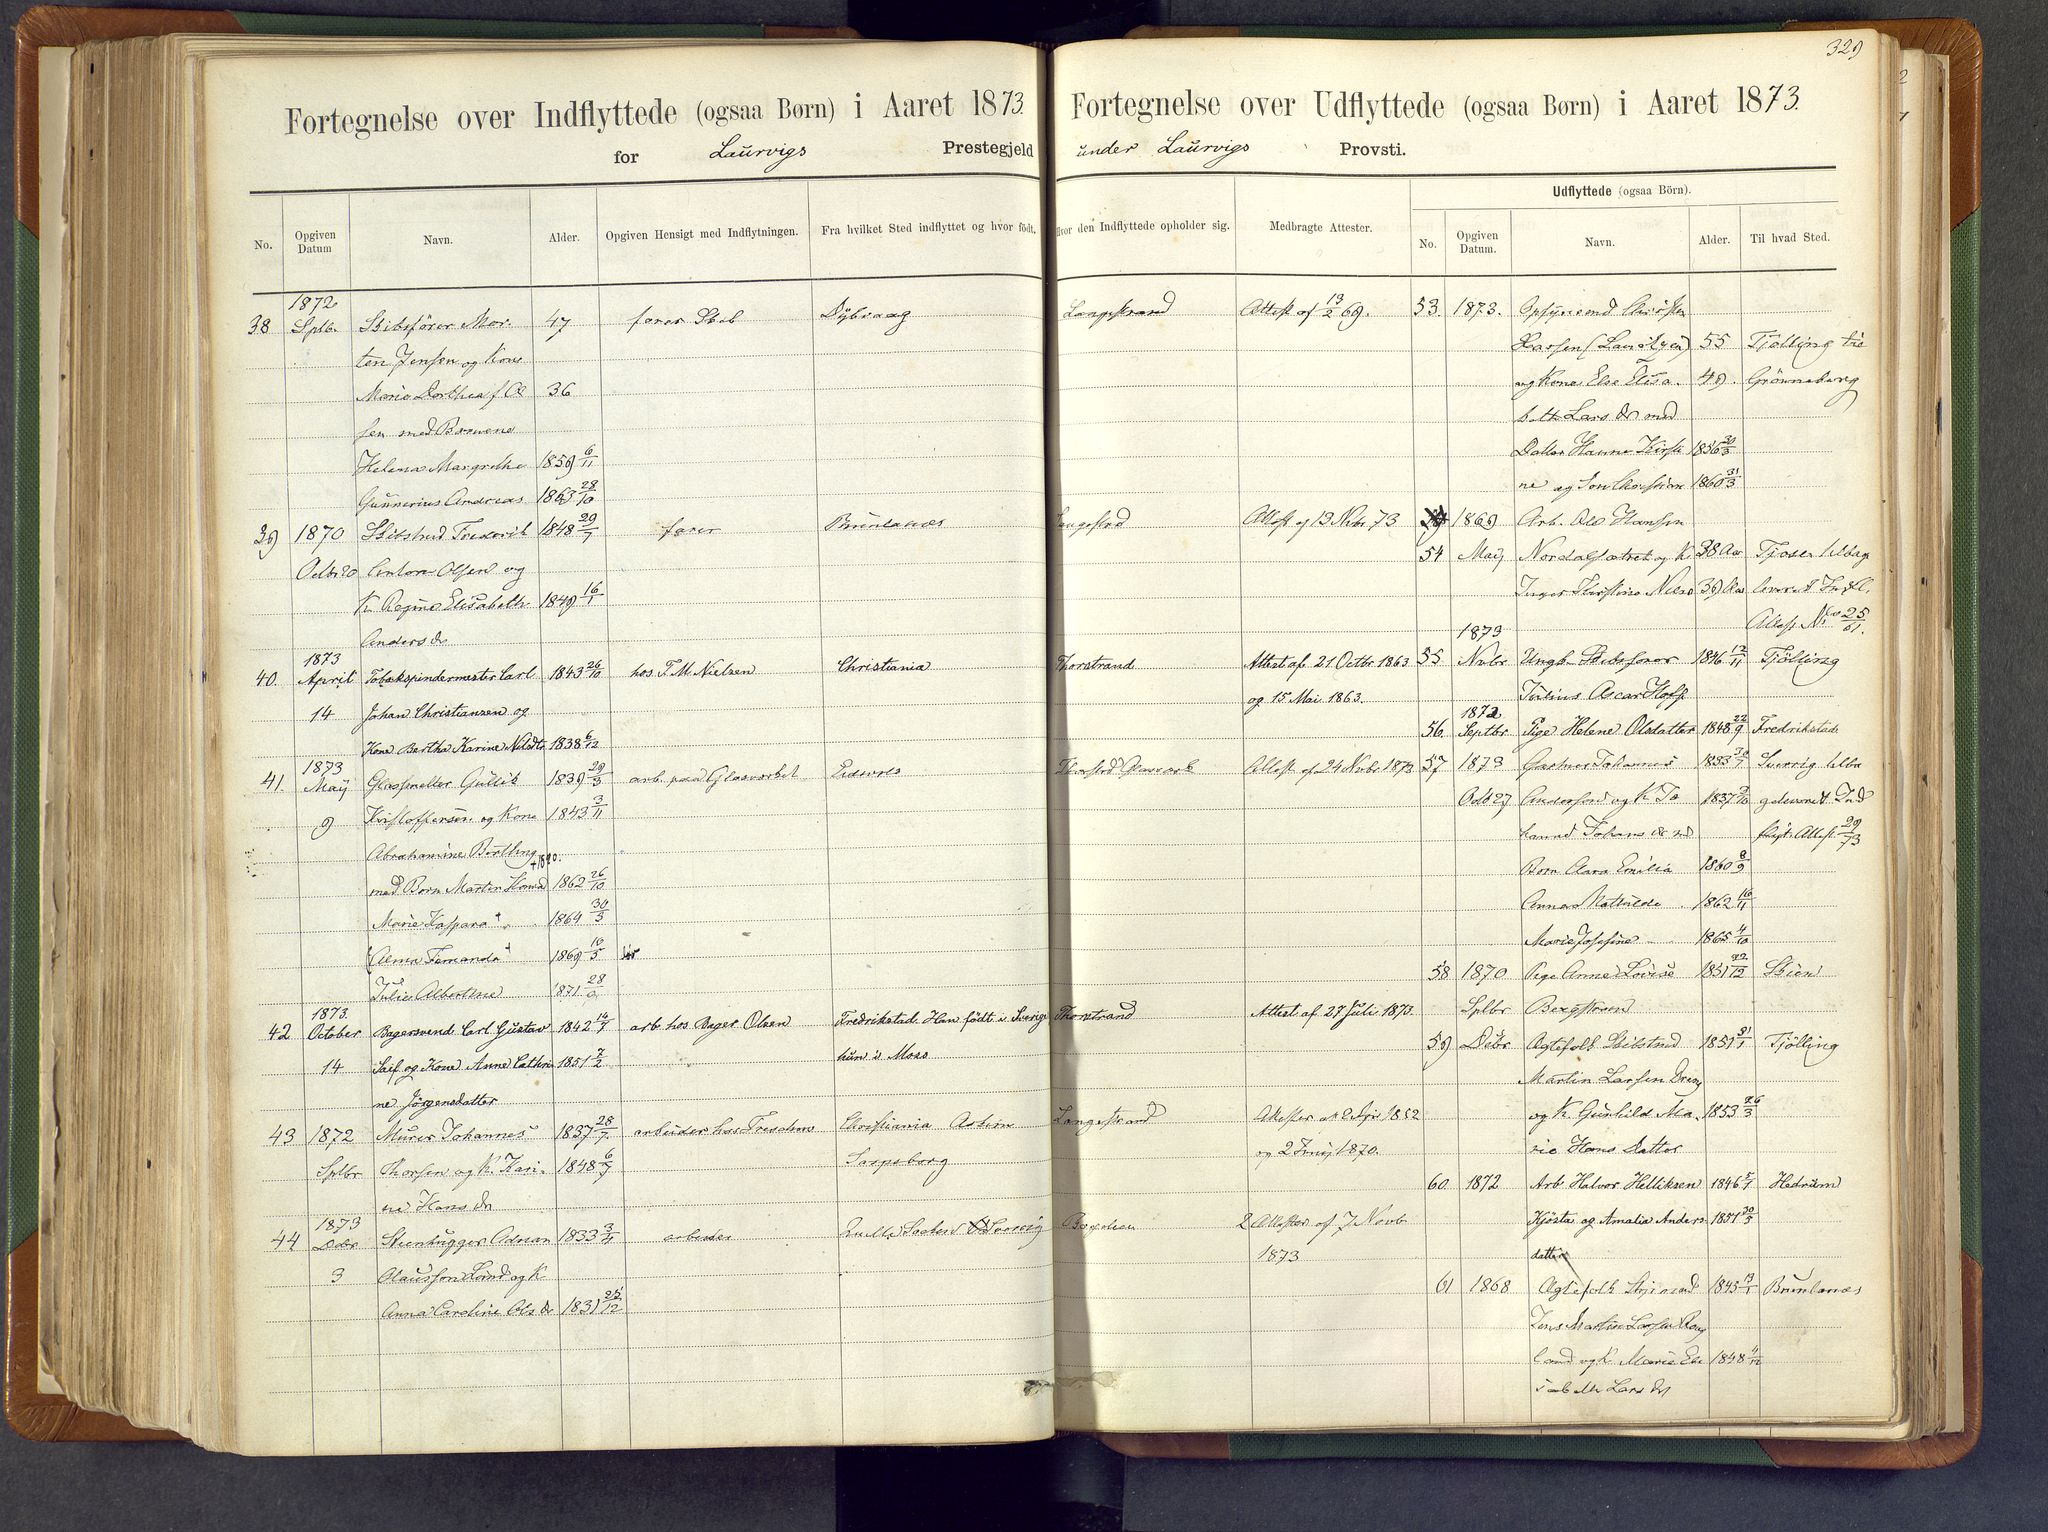 329
Fortegnelse over Indflyttede (ogsaa Børn) i Aaret 1873.
for Laurvigs Prestegjeld
No. Opgiven Datum Navn. Alder. Opgiven Hensigt med Indflytningen. Fra hvilket Sted indflyttet og hvor født.
1872
38 Sptb. Skibsfører Mor- 47 farer Skib Dybvaag
ten Jensen og Kone
Marie Dorthea f. Ol 36
sen med Børnene
Helena Margrethe 1859 6/11
Gunnerius Andreas 1863 28/10
39 1870 Skibstmd Frederik 1848 29/7 farer Brunlanæs
Octbr 20 Anton Olsen og
K Regine Elisabeth 1849 16/1
Anders dr
1873
40. April Tobakspindermester Carl 1843 26/10 hos F. M. Nielsen Christiania
14 Johan Christiansen og
Kone Bertha Karine Nilsdtr 1838 6/12
1873
41. Maij Glaspuster Gullik 1839 29/3 arb. paa Glasværket Eidsvold
9 Kristoffersen og Kone 1843 3/11
Abrahamine Berthng
+ 1890.
med Børn Martin 1862 26/10
Marie Kaspara + 1864 30/3
(Alma Fernanda + 1869 16/5
Julie Albertine 1871 28/9
1873.
42 October Bagersvend Carl Gustav 1842 14/7 arb. hos Bager Olsen Fredrikstad. Han født i Sverige
14 Saif og Kone Anne Cathri 1851 7/2 hun i Moss
ne Jörgensdatter
43 1872 Murer Johannes 1837 28/7 arbeider hos Treschow Christiania
Sptbr Thorsen og K. Kari- 1848 6/9 Sarpsborg
ne Hans dr
1873
44 Decbr Steenhugger Adrian 1833 3/11 arbeider Sverig
3 Olausson Lund og K
Anna Caroline Ols dr 1831 25/12
Fortegnelse over Udflyttede (ogsaa Børn) i Aaret 1873.
under Laurvigs Provsti.
Udflyttede (ogsaa Börn).
Hvor den Indflyttede opholder sig. Medbragte Attester. No. Opgiven Datum. Navn. Alder. Til hvad Sted.
Langestrand Attest af 13/2 69. 53. 1873. Opsynsmd Christen
Larsen 55 Tjølling til
og Kone Else Elisa- 49. Grønneberg
beth Lars dr med
Datter Hanne Kirsti 1856 30/3
ne og Søn Christian 1860 31/3
Langestrd Attest af 13 Nvbr. 73 1869 Arb. Ole Hansen
54 Maij Nordalsætret og K 38 Aar Tjose tilbag
Inger Kirstine Niels d 39 Aar leveret Indfl.
Attest No 25/61.
1873
Thorstrand Attest af 21. Octbr. 1863 55 Nvbr Ungk. Skibsfører 1846 12/11 Tjølling
og 15 Mai 1863. Julius Oscar Hoff
1872
56. Septbr Pige Helene Olsdatter 1848 22/9 Fredrikstad
Glasværk Attest af 24 Nvbr 1873 57 1873 Gartner Johannes 1833 30/7 Sverrig tilba
Octb 27 Anderson og K Jo 1837 3/10 geleveret Ind
hanne Johans dr md flyt. Attest 29/73
Børn Clara Emilia 1860 8/9
Anna Mathilde 1862 16/11
Marie Josefine 1865 4/10
58 1870 Pige Anne Lovise 1851 22/12 Skien
Thorstrand Attest af 27 Juli 1873. Sptbr Bergstrøm
59 Decbr Ægtefolk Skibstmd 1851 31/1 Tjölling
Martin Larsen
og K. Gunhild Ma- 1853 26/3
Langestrand Attester af 2 Apr. 1852 rie Hans datter
og 2 Juni 1870.
60. 1872 Arb. Halvor Helliksen 1846 5/7 Hedrum
Bøgelien 2 Attester af 7 Novb Kjösta og Amalia Anders 1851 30/5
1873 datter
61 1868 Ægtefolk Styrmd 1843 19/1 Brunlanæs
Jens Martin Larsen
land og K. Marie Eli 1848 4/12
sabeth Lars dr